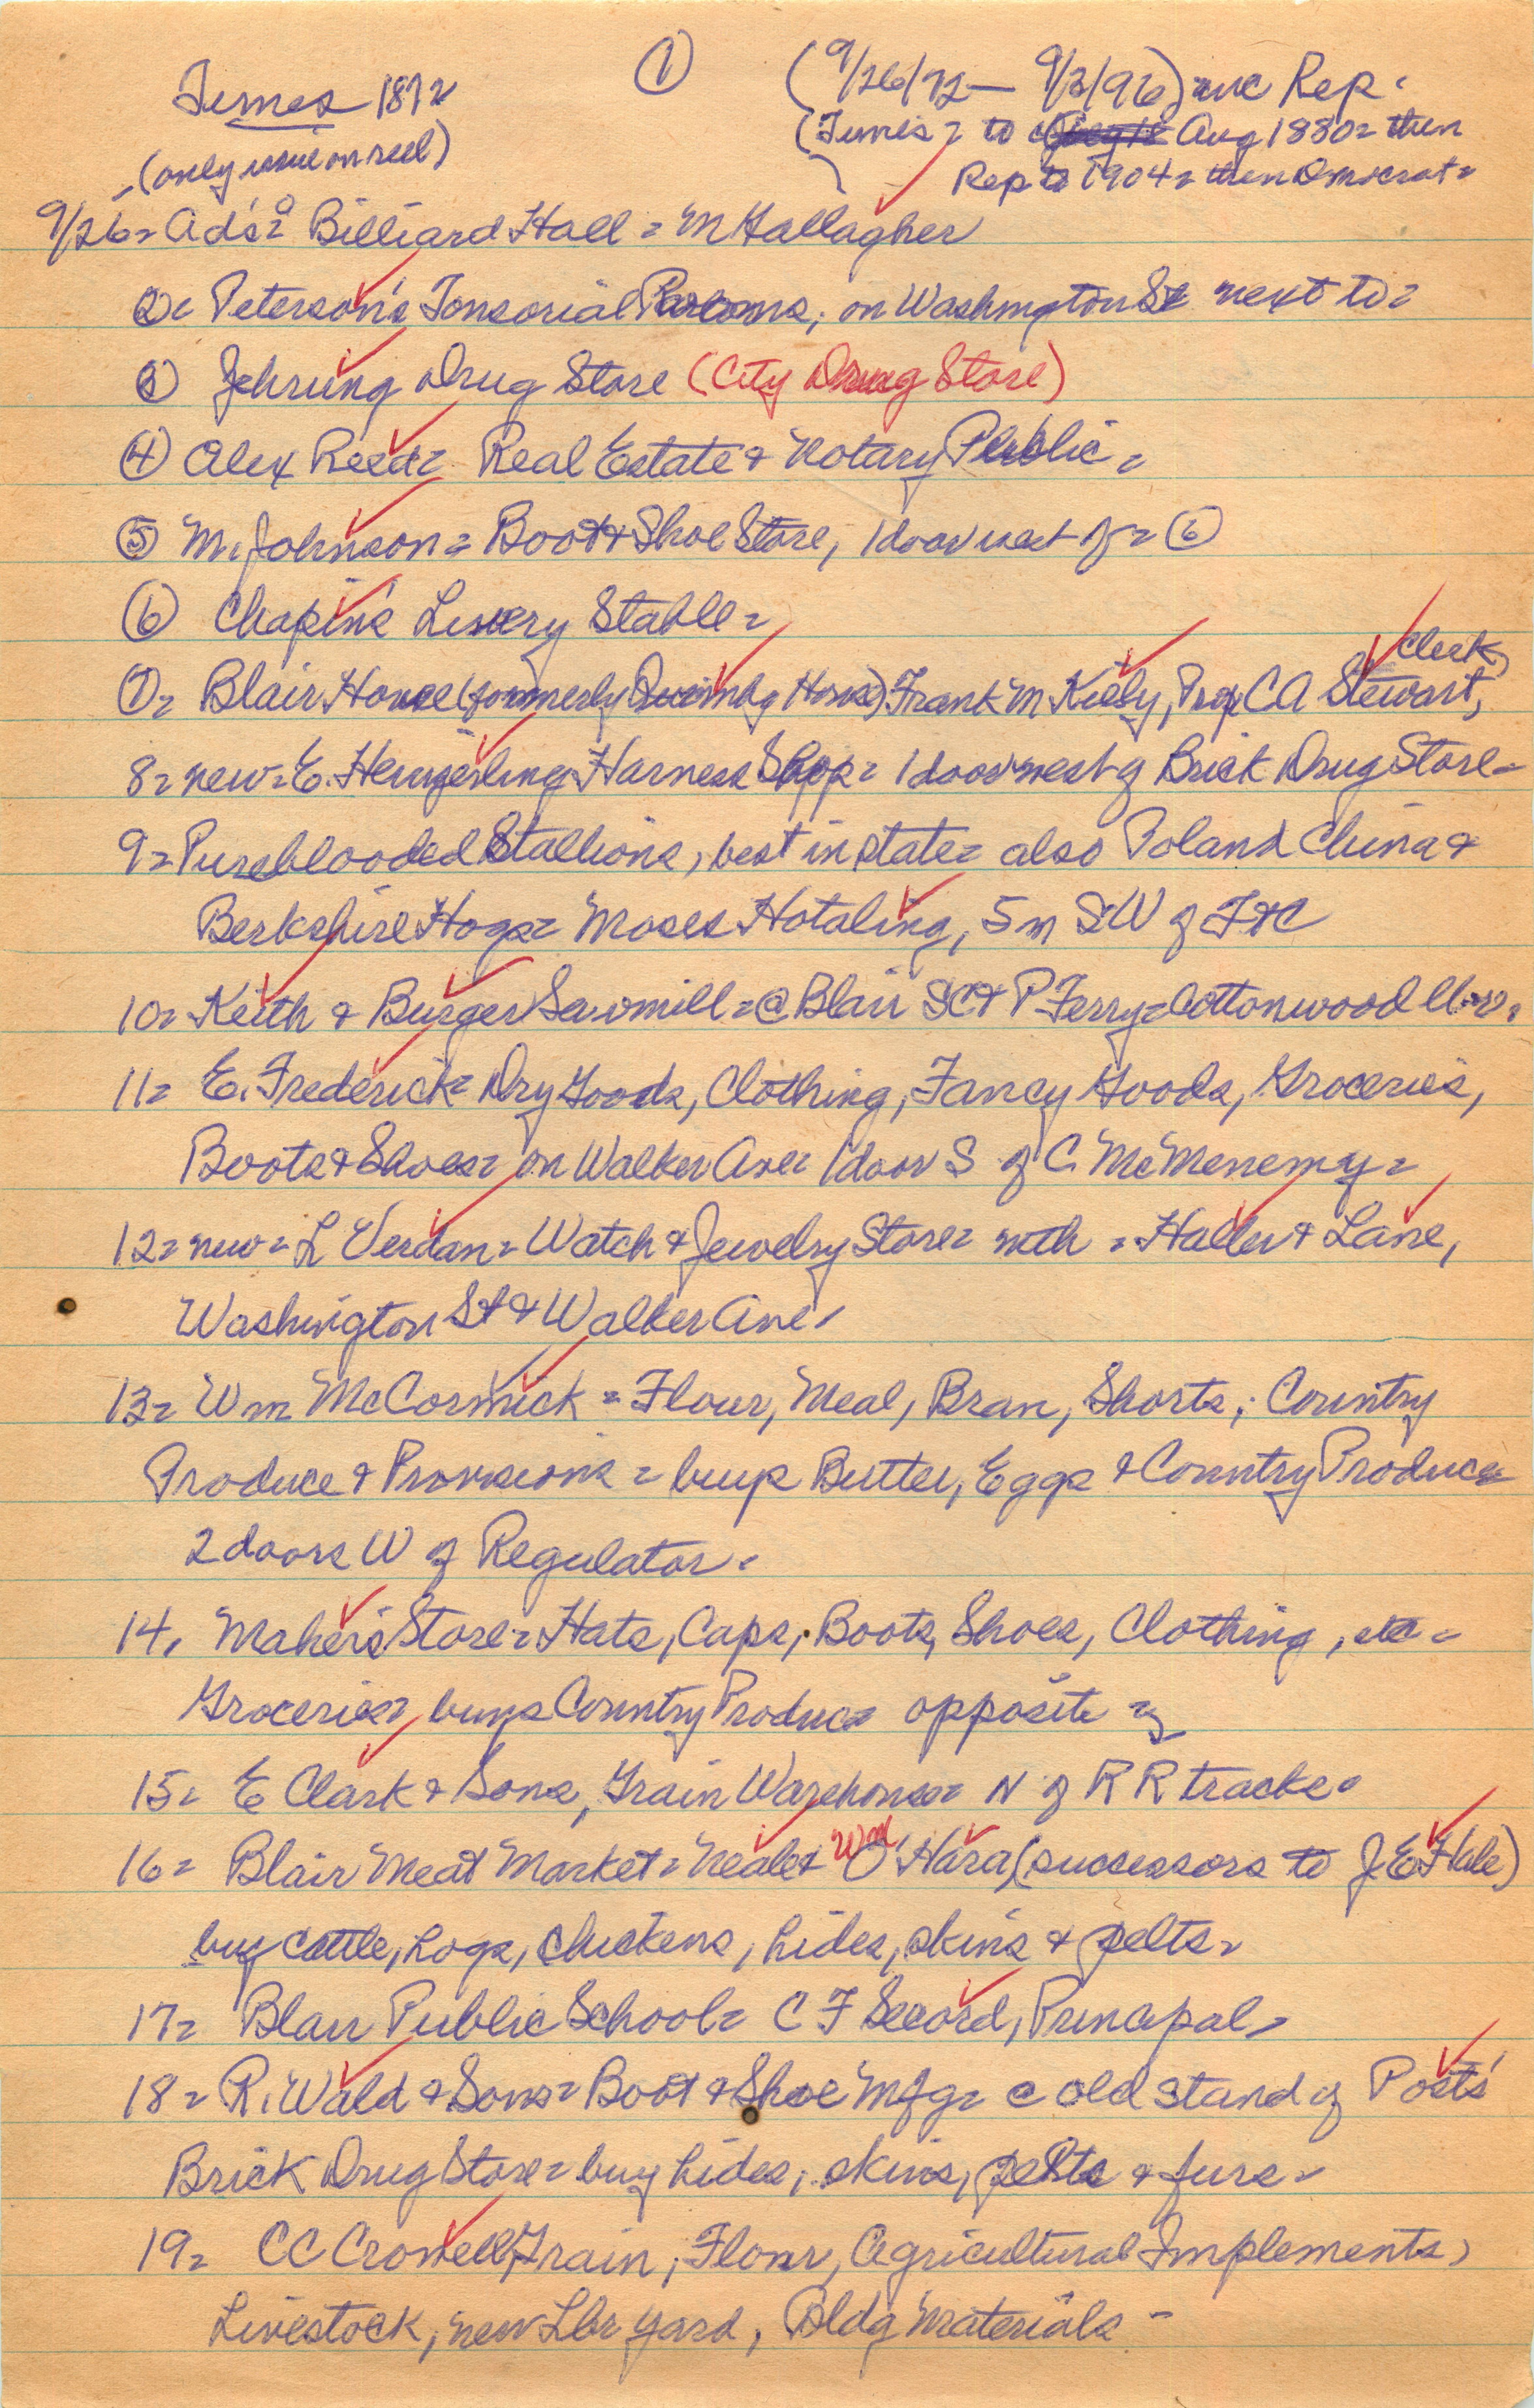 ①
Times 1872
(only issue on reel)
(9/26/72 — 9/3/96) inc Rep.
(Times = to Aug 1880 = then
Rep to 1904 = then Democrat =
9/26 = Ad's = Billiard Hall = M Gallagher
② = Peterson's Tonsorial Parlors, on Washington St next to =
③ Jehring Drug Store (City Drug Store)
④ Alex Reed = Real Estate & Notary Public =
⑤ M. Johnson = Boot & Shoe Store, 1 door west of = ⑥
⑥ Chapin's Livery Stable =
⑦ = Blair House (formerly House) Frank M Kielsy, Prop, C A Stewart, Clerk
8 = new = E. Hengerling Harness Shop = 1 door west of Brick Drug Store =
9 = Pureblooded Stallions, best in state = also Poland China &
Berkshire Hogs = Moses Hotaling, 5 m SW of
10 = Keith & Burger Sawmill = @ Blair SC & P Ferry = Cottonwood
11 = E. Frederick = Dry Goods, Clothing, Fancy Goods, Groceries,
Boots & Shoes = on Walker Ave = 1 door S of C. McMenemy =
12 = new = L Verdan = Watch & Jewelry Store = with = Haller & Lane,
Washington St & Walker Ave.
13 = Wm McCormick = Flour, Meal, Bran, Shorts, Country
Produce & Provisions = buys Butter, Eggs & Country Produce
2 doors W of Regulator =
14. Maher's Store = Hats, Caps, Boots, Shoes, Clothing, etc =
Groceries = buys Country Produce opposite =
15 = E Clark & Sons, Grain Warehouse = N of R R tracks =
16 = Blair Meat Market = Neale & Wm O'Hara, (successors to J. E. Hale)
buy cattle, hogs, chickens, hides, skins & pelts =
17 = Blair Public School = C F Secord, Principal =
18 = R. Wald & Sons = Boot & Shoe Mfg = @ old stand of Post's
Brick Drug Store = buy hides, skins, pelts & furs =
19 = CC Crowell, Grain, Flour, Agricultural Implements,
Livestock, new Lbr yard, Bldg Materials -